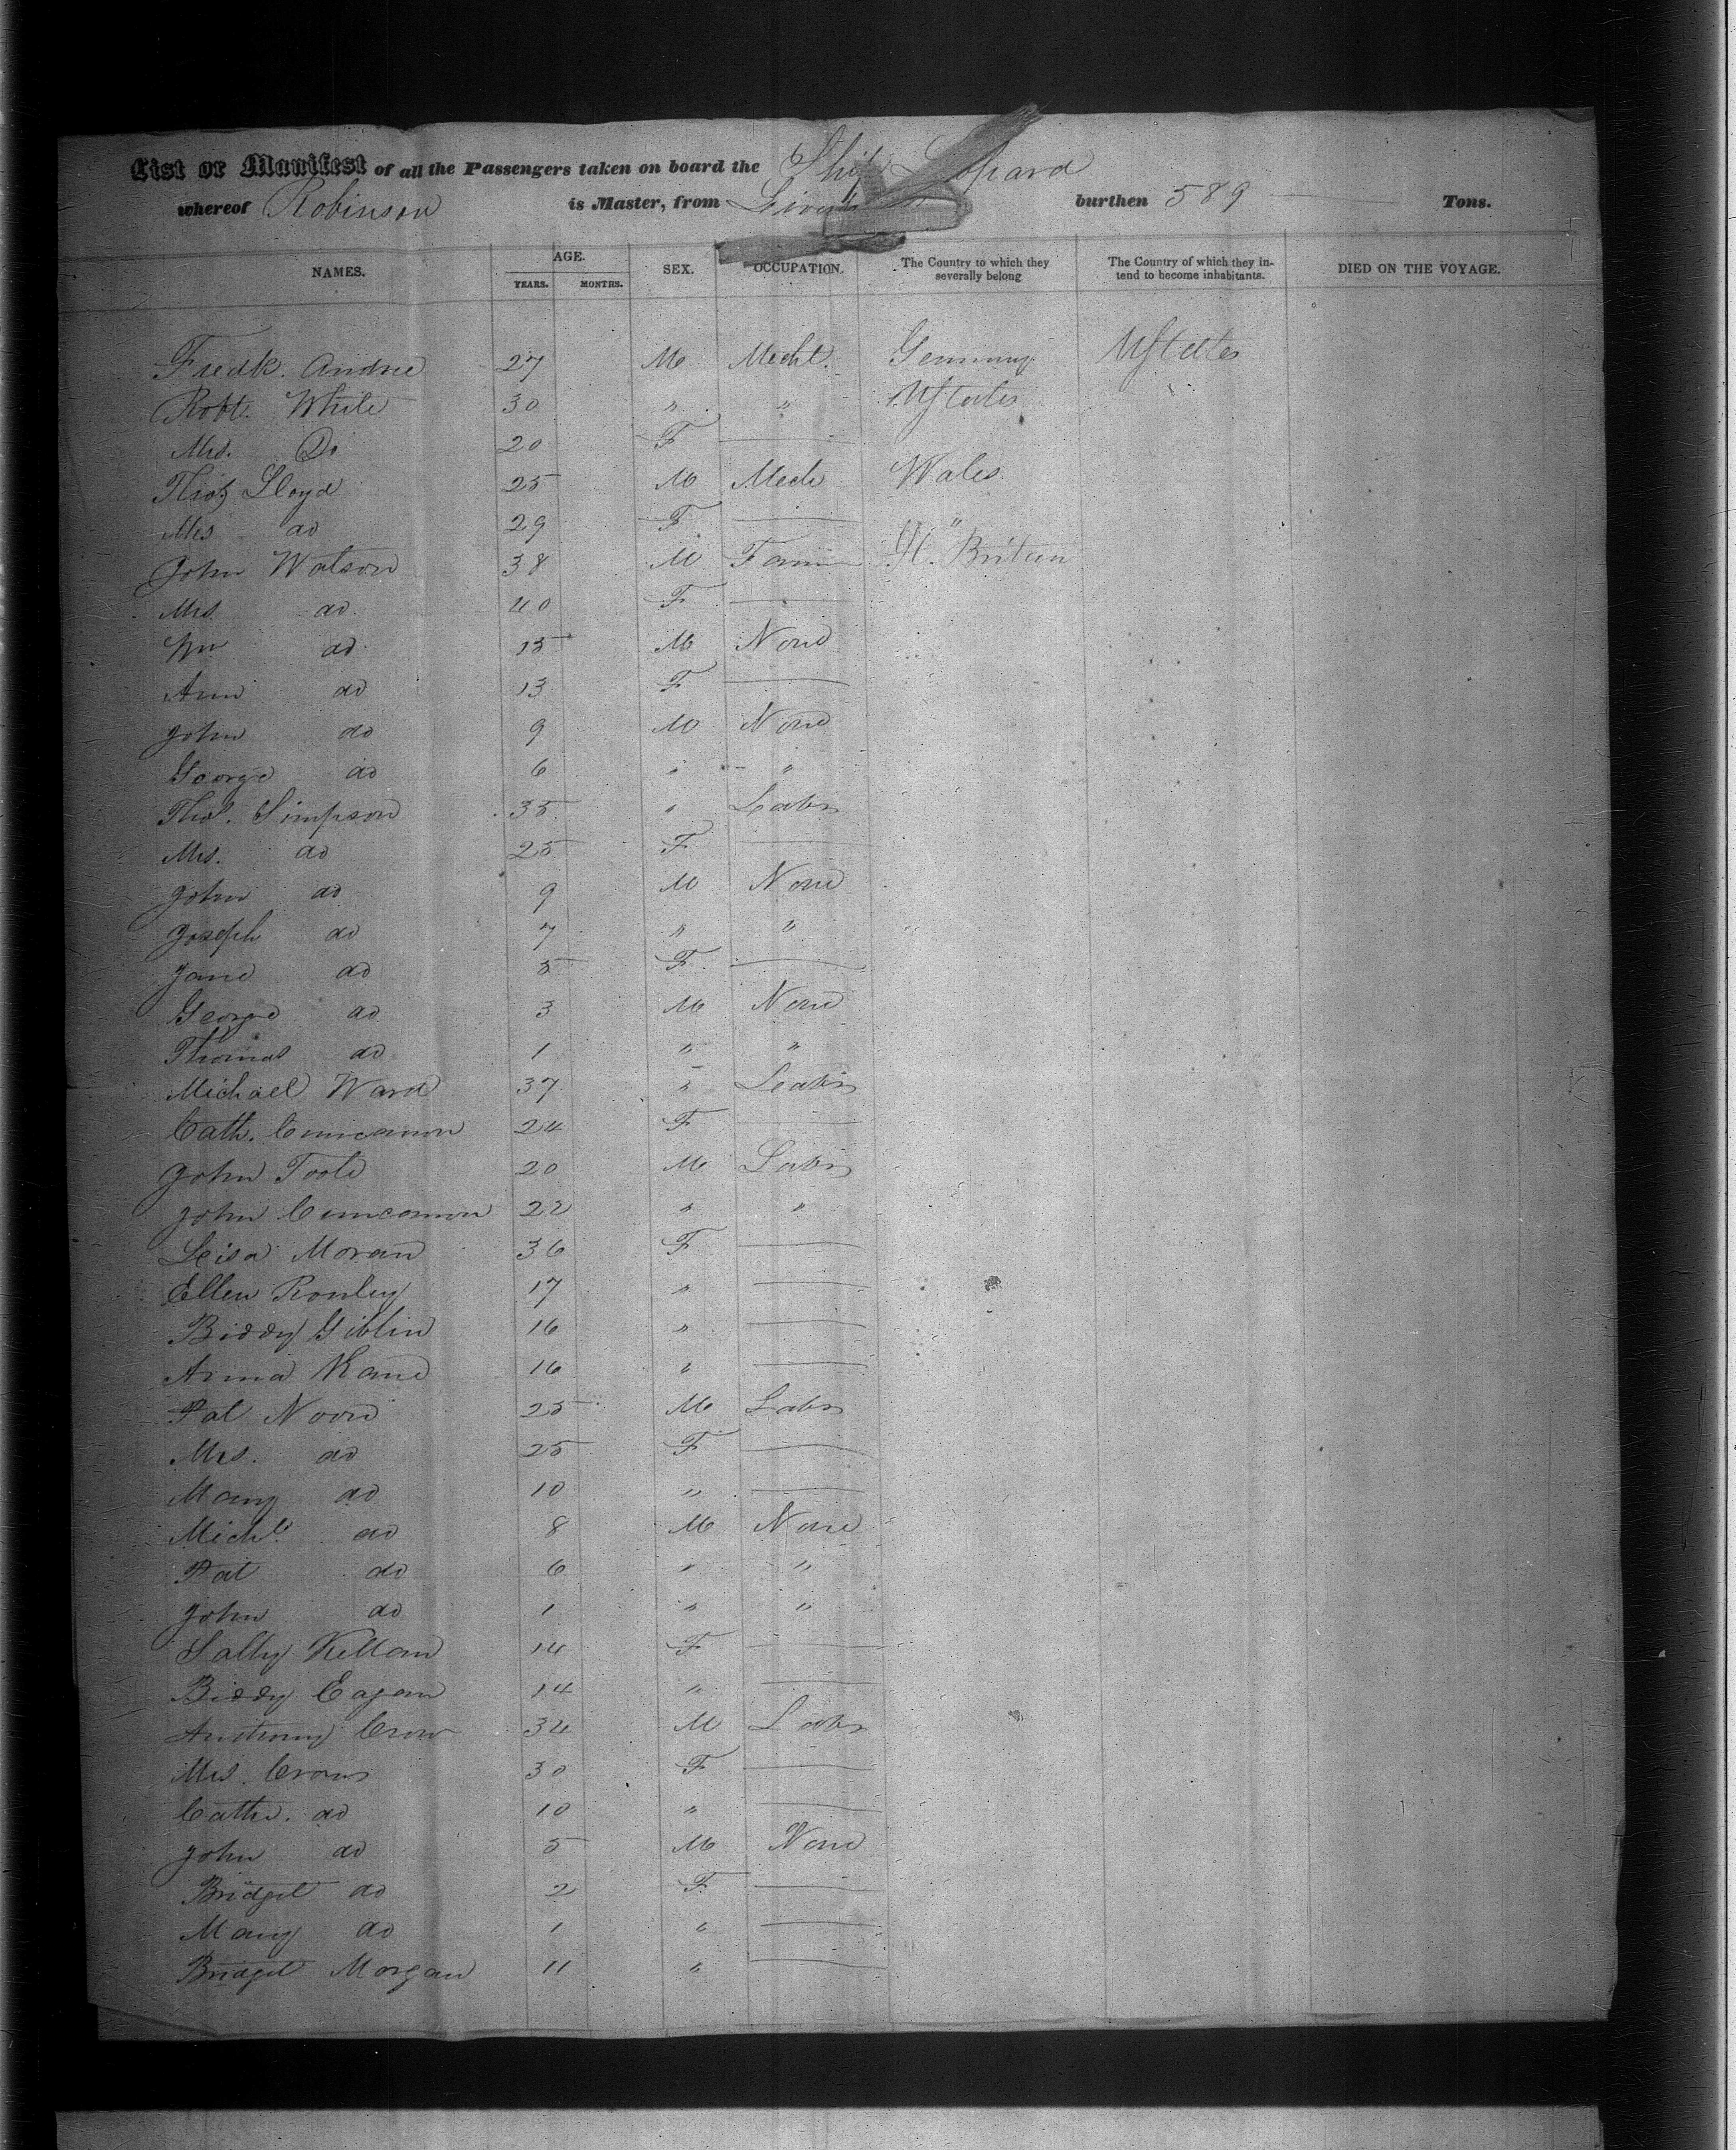 List or Manifest of all the Passengers taken on board the Ship
whereof Robinson is Master, from burthen 589 Tons.
NAMES. AGE. YEARS. MONTHS. SEX. OCCUPATION. The Country to which they severally belong The Country of which they intend to become inhabitants. DIED ON THE VOYAGE.
Fredk. Andree 27 M Mecht. Germany UStates
Robt. White 30 " " UStates
Mrs. Do 20 F
Thos Lloyd 25 M Mech Wales
Mrs do 29 F "
John Watson 38 M Farmer Britain
Mrs do 40 F
Wm do 15 M None
Ann do 13 F
John do 9 M None
George do 6 " "
Thos. Simpson 35 " Labr
Mrs. do 25 F
John do 9 M None
Joseph do 7 " "
Jane do 5 F
George do 3 M None
Thomas do 1 " "
Michael Ward 37 " Labr
Cath. Cunnanon 24 F
John Toole 20 M Labr
John Cunnanon 22 " "
Moran 36 F
Ellen 17 "
Biddy Giblin 16 "
Anna Kane 16 "
Pat Noon 25 M Labr
Mrs. do 25 F
Mary do 10 "
Michl. do 8 M None
Pat do 6 " "
John do 1 " "
Sally 14 F
Biddy Eagan 14 "
Anthony Crow 34 M Labr
Mrs. Crow 30 F
Cathe. do 10 "
John do 5 M None
Bridget do 2 F
Mary do 1 "
Bridget Morgan 11 "